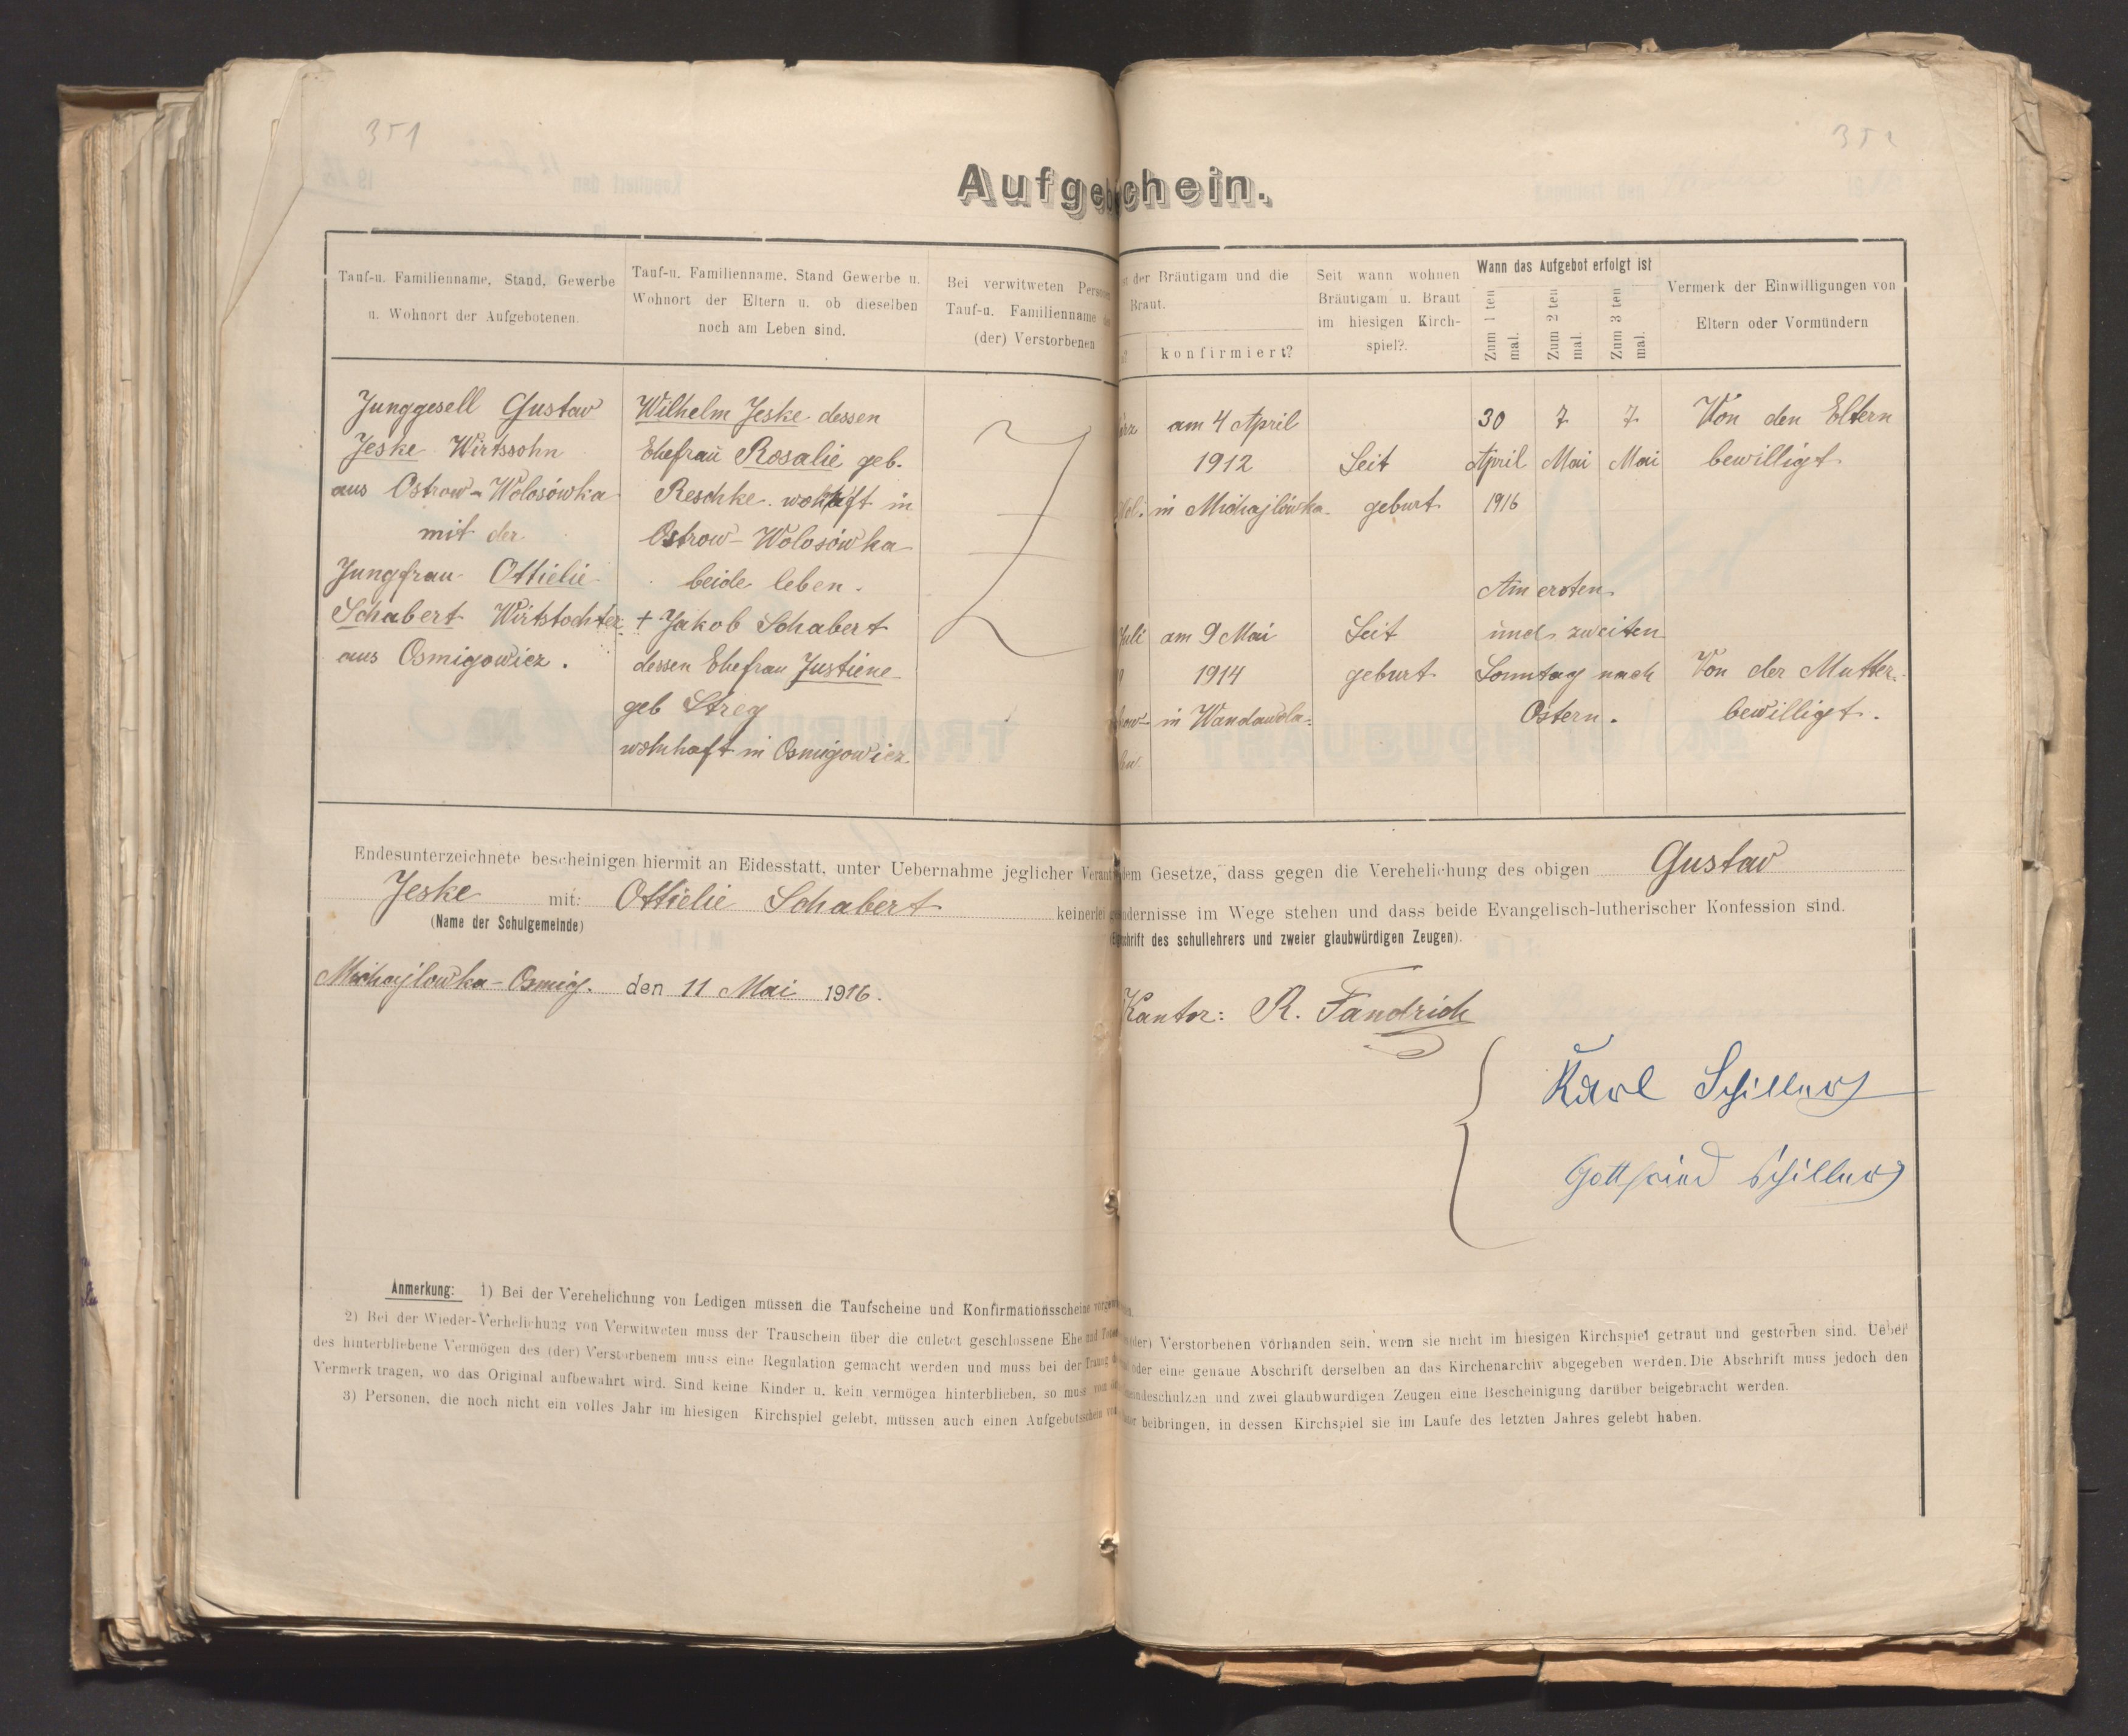 351
352
Aufgeb chein.
Tauf-u. Familienname, Stand, Gewerbe
u. Wohnort der Aufgebotenen.
Tauf-u. Familienname, Stand Gewerbe u.
Wohnort der Eltern u. ob dieselben
noch am Leben sind.
Bei verwitweten Personen
Tauf-u. Familienname
(der) Verstorbenen
der Bräutigam und die
Braut.
konfirmiert?
Seit wann wohnen
Bräutigam u. Braut
im hiesigen Kirch-
spiel?.
Wann das Aufgebot erfolgt ist
Zum 1 ten
mal.
Zum 2 ten
mal.
Zum 3 ten
mal.
Vermerk der Einwilligungen von
Eltern oder Vormündern
Junggesell Gustav
Jeske Wirtssohn
aus Ostrow-Wolosówka
mit der
Jungfrau Ottielie
Schabert Wirtstochter
aus Osmigowicz.
Wilhelm Jeske dessen
Ehefrau Rosalie geb.
Reschke wohaft in
Ostrow-Wolosówka
beide leben.
+ Jakob Schabert
dessen Ehefrau Justiene
geb Streg
wohnhaft in Osmigowicz
am 4 April
1912
in Michajlówka
Seit
geburt
30
April
1916
7
Mai
7
Mai
Von den Eltern
bewilligt
Juli
am 9 Mai
1914
in Wandawola
Seit
geburt
Am ersten
und zweiten
Sonntag nach
Ostern.
Von der Mutter
bewilligt.
Endesunterzeichnete bescheinigen hiermit an Eidesstatt, unter Uebernahme jeglicher Verant dem Gesetze, dass gegen die Verehelichung des obigen Gustav
Jeske mit: Ottielie Schabert keinerlei dernisse im Wege stehen und dass beide Evangelisch-lutherischer Konfession sind.
(Name der Schulgemeinde)
schrift des schullehrers und zweier glaubwürdigen Zeugen).
Michajlowka-Osmig. den 11 Mai 1916.
Kantor: R. Fandrich
Karl Schiller
Gottfried Schiller
Anmerkung: 1) Bei der Verehelichung von Ledigen müssen die Taufscheine und Konfirmationsscheine
2) Bei der Wieder-Verhelichung von Verwitweten muss der Trauschein über die culetet geschlossene Ehe und (der) Verstorbenen vorhanden sein, wenn sie nicht im hiesigen Kirchspiel getraut und gestorben sind. Ueber
des hinterbliebene Vermögen des (der) Verstorbenem muss eine Regulation gemacht werden und muss bei der Trauung oder eine genaue Abschrift derselben an das Kirchenarchiv abgegeben werden. Die Abschrift muss jedoch den
Vermerk tragen, wo das Original aufbewahrt wird. Sind keine Kinder u. kein vermögen hinterblieben, so muss indeschulzen und zwei glaubwurdigen Zeugen eine Bescheinigung darüber beigebracht werden.
3) Personen, die noch nicht ein volles Jahr im hiesigen Kirchspiel gelebt, müssen auch einen Aufgebotsschein beibringen, in dessen Kirchspiel sie im Laufe des letzten Jahres gelebt haben.